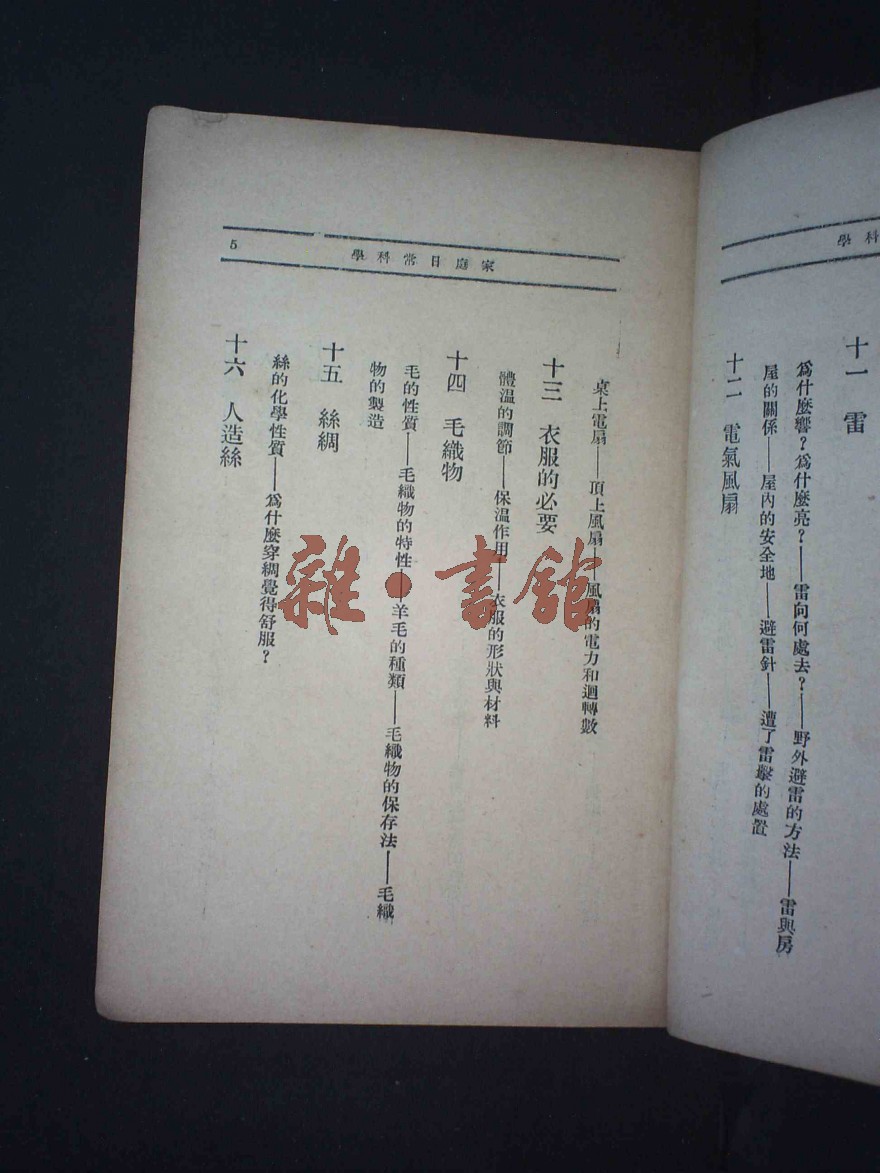 學科
十一　雷
爲什麼響？爲什麼亮？——雷向何處去？——野外避雷的方法——雷與房
屋的關係——屋內的安全地——避雷針——遭了雷擊的處置
十二　電氣風扇
5
學科常日庭家
桌上電扇——頂上風扇——風扇的電力和迴轉數
十三　衣服的必要
體温的調節——保温作用——衣服的形狀與材料
十四　毛織物
毛的性質——毛織物的特性——羊毛的種類——毛織物的保存法——毛織
物的製造
十五　絲綢
絲的化學性質——爲什麼穿綢覺得舒服？
十六　人造絲
雜·書館